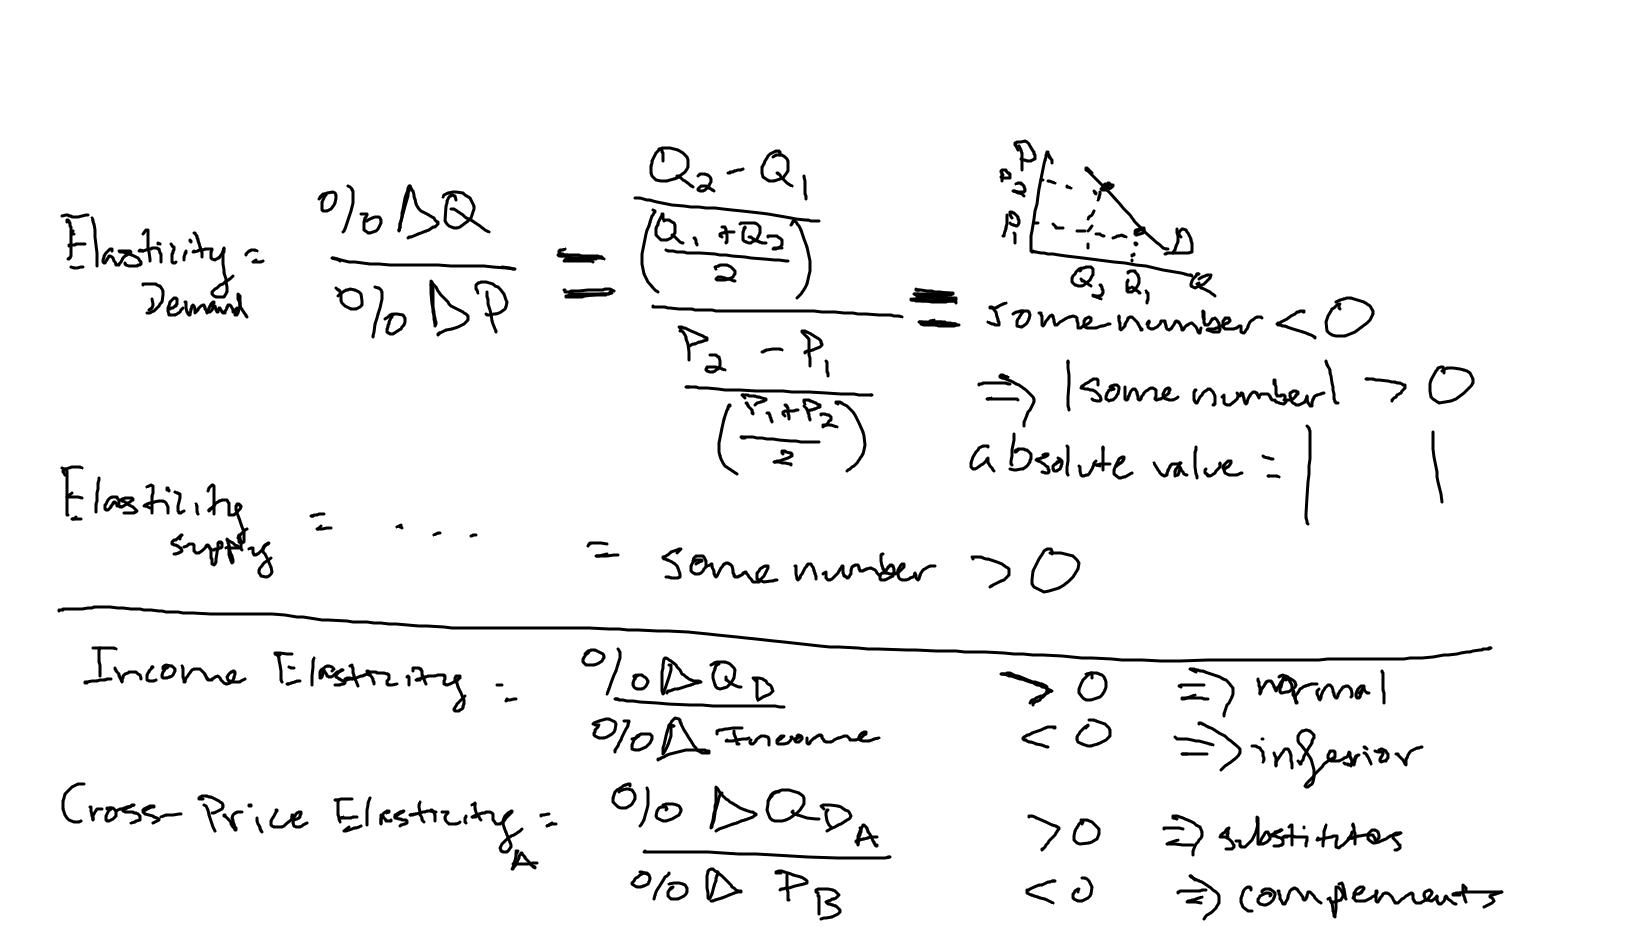 Elasticity Demand = %ΔQ / %ΔP = ((Q2 - Q1) / ((Q1 + Q2) / 2)) / ((P2 - P1) / ((P1 + P2) / 2)) = some number < 0
P
P2
P1
D
Q2 Q1 Q
⇒ |some number| > 0
absolute value = | |
Elasticity supply = . . . = some number > 0
Income Elasticity = %ΔQD / %Δ Income > 0 ⇒ normal
< 0 ⇒ inferior
Cross-Price Elasticity A = %ΔQDA / %Δ PB > 0 ⇒ substitutes
< 0 ⇒ complements